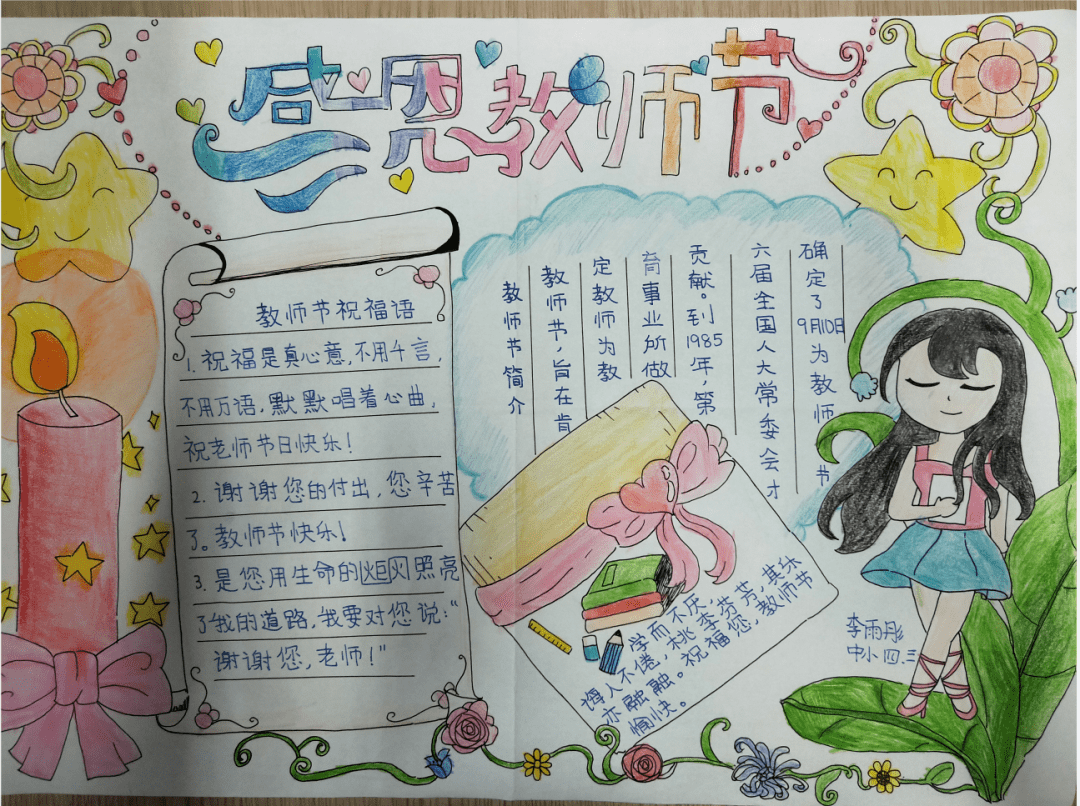 感恩教师节
教师节祝福语
1.祝福是真心意，不用千言，
不用万语，默默唱着心曲，
祝老师节日快乐！
2.谢谢您的付出，您辛苦
了。教师节快乐！
3.是您用生命的炬火照亮
了我的道路，我要对您说：“
谢谢您，老师！”
教师节简介
教师节，旨在肯
定教师为教
育事业所做
贡献。到1985年，第
六届全国人大常委会才
确定了9月10日为教师节
学而不厌，
诲人不倦，桃李芬芳，其乐
亦融融。祝福您，教师节
愉快。
李雨彤
中小四.三